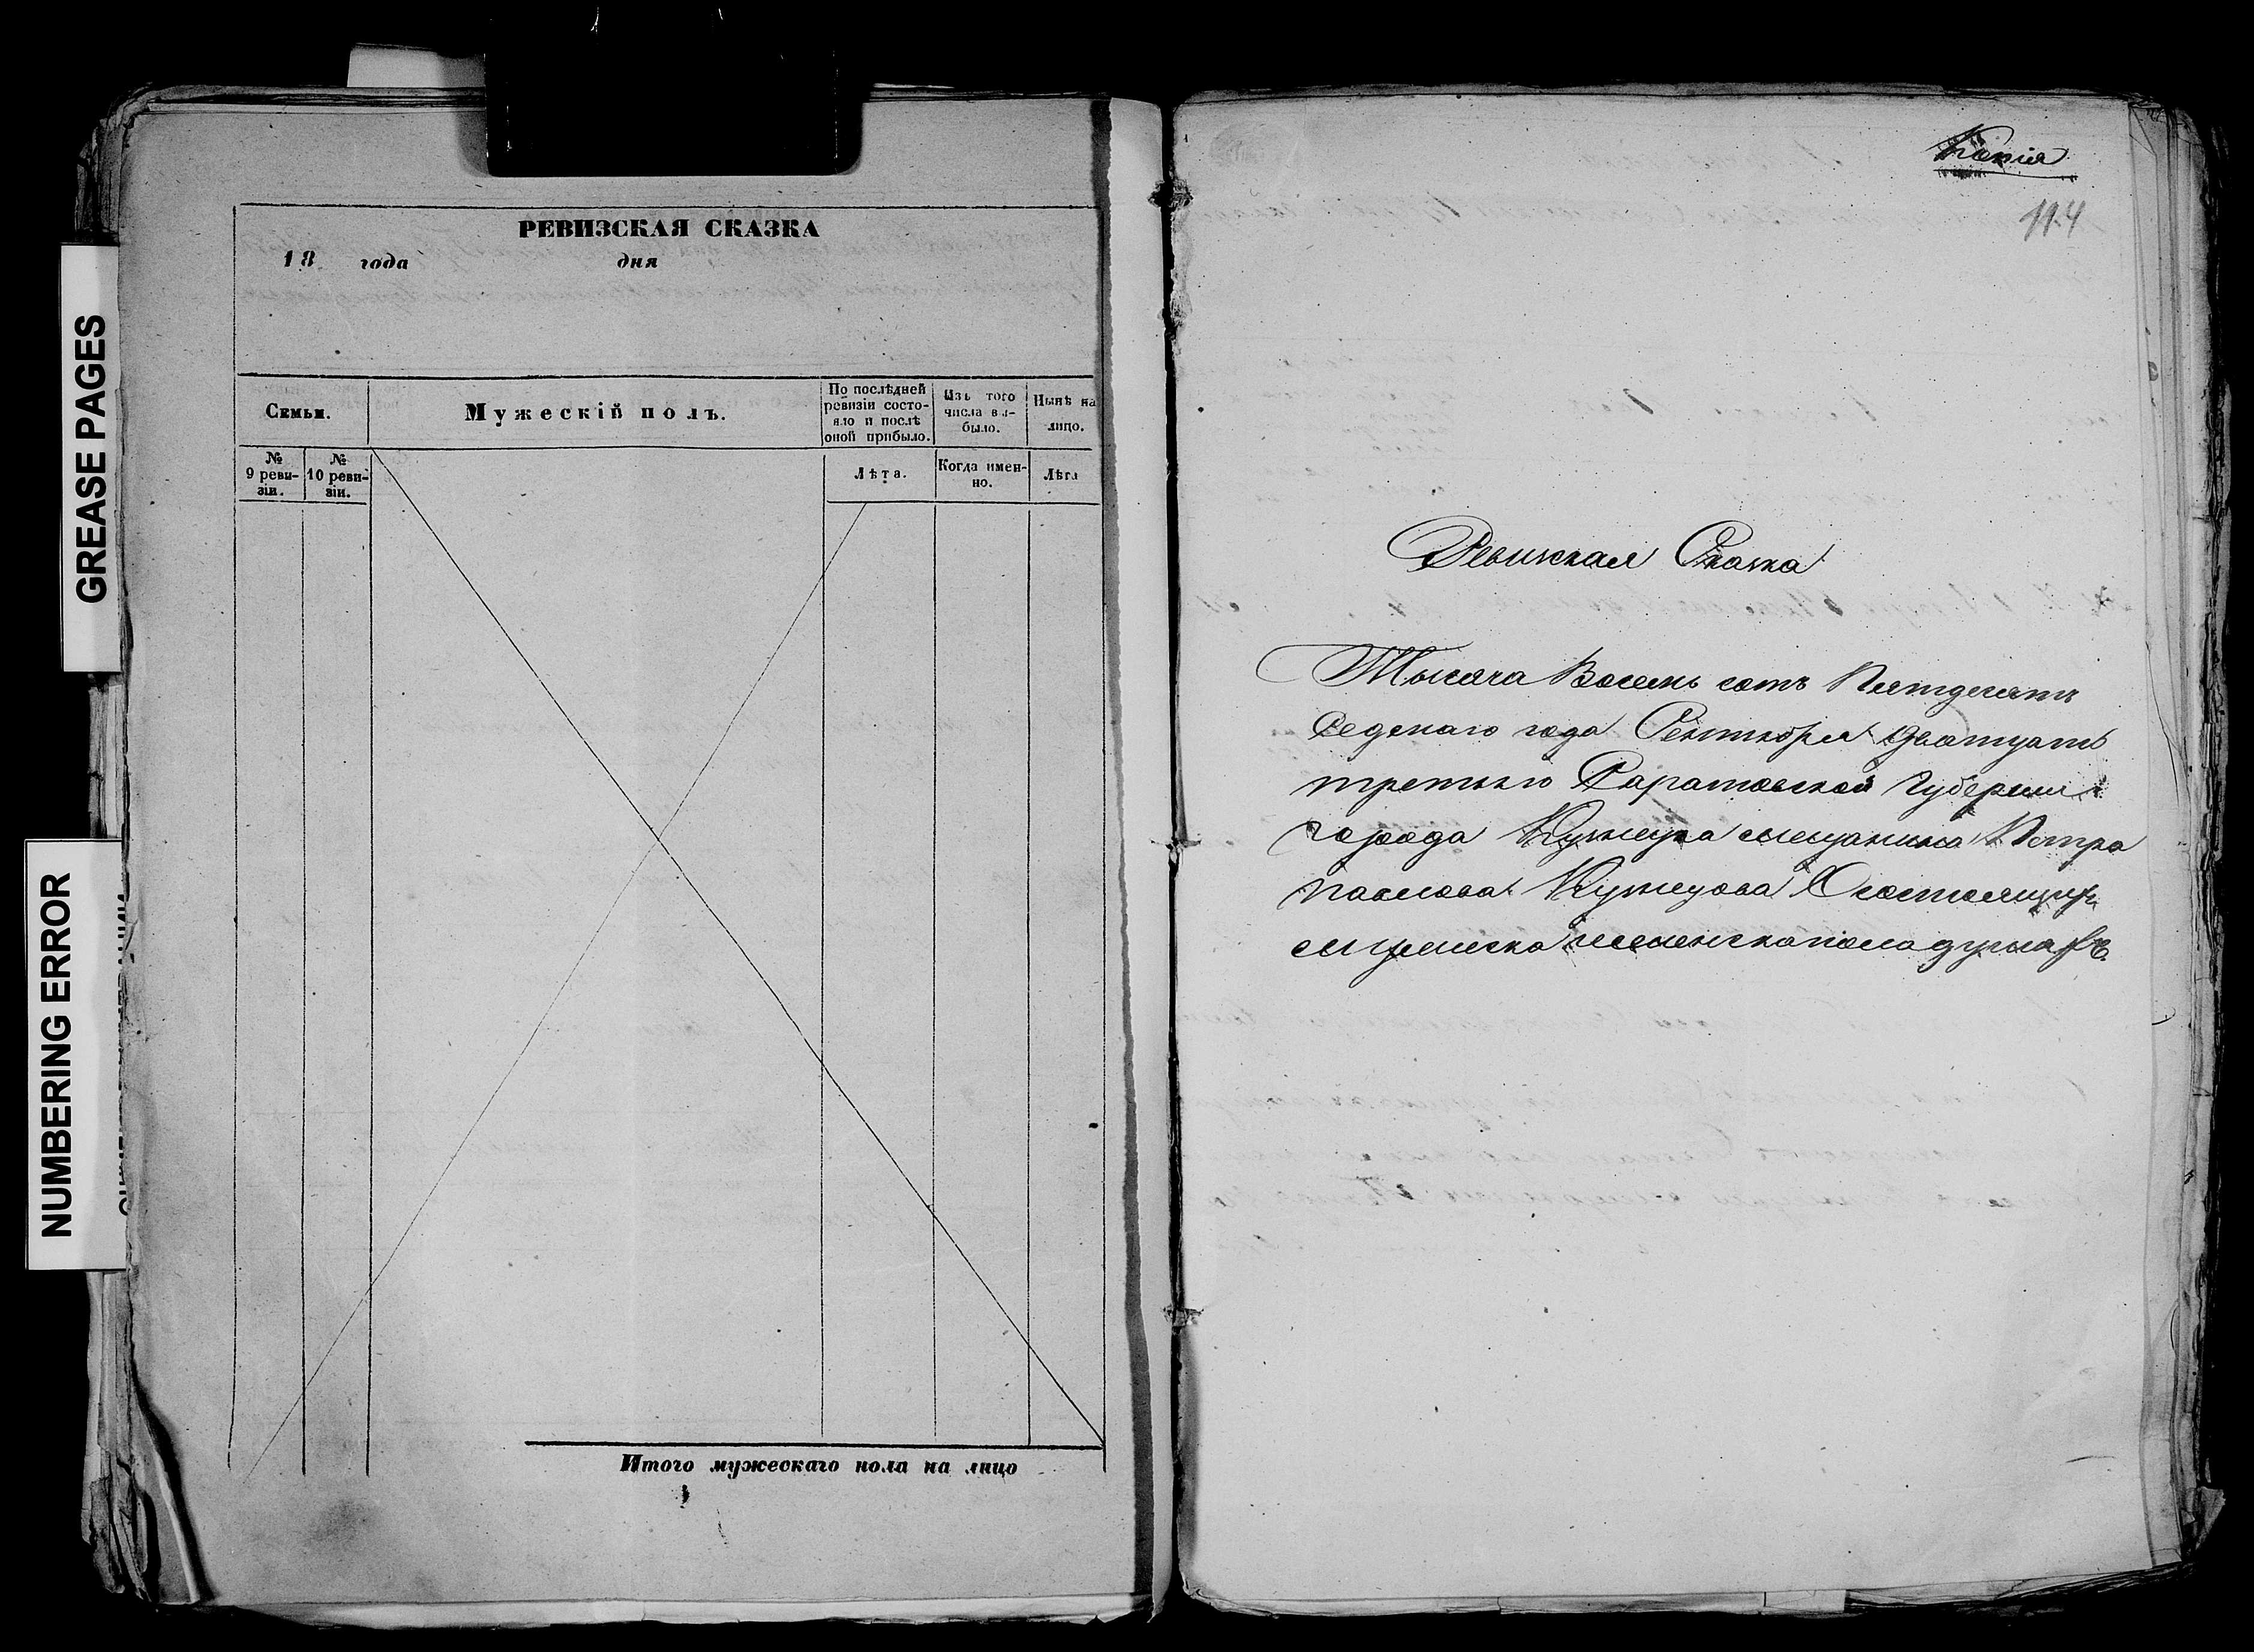 GREASE PAGES
NUMBERING ERROR
РЕВИЗСКАЯ СКАЗКА
18 года дня
Семьи.
Мужескій полъ.
По послѣдней ревизіи состояло и послѣ оной прибыло.
Изъ того числа выбыло.
Нынѣ на лицо.
№ 9 ревизіи.
№ 10 ревизіи.
Лѣта.
Когда именно.
Лѣта
Итого мужескаго пола на лицо
Копія
114
Ревизская Сказка
Тысяча Восемь сотъ Пятдесятъ
Седмаго года Сентября дватцать
третьяго Саратовской Губерніи
города Кузнецка мещанина Петра
Павлова Кузнецова О состоящихъ
мужеска женска пола душахъ.